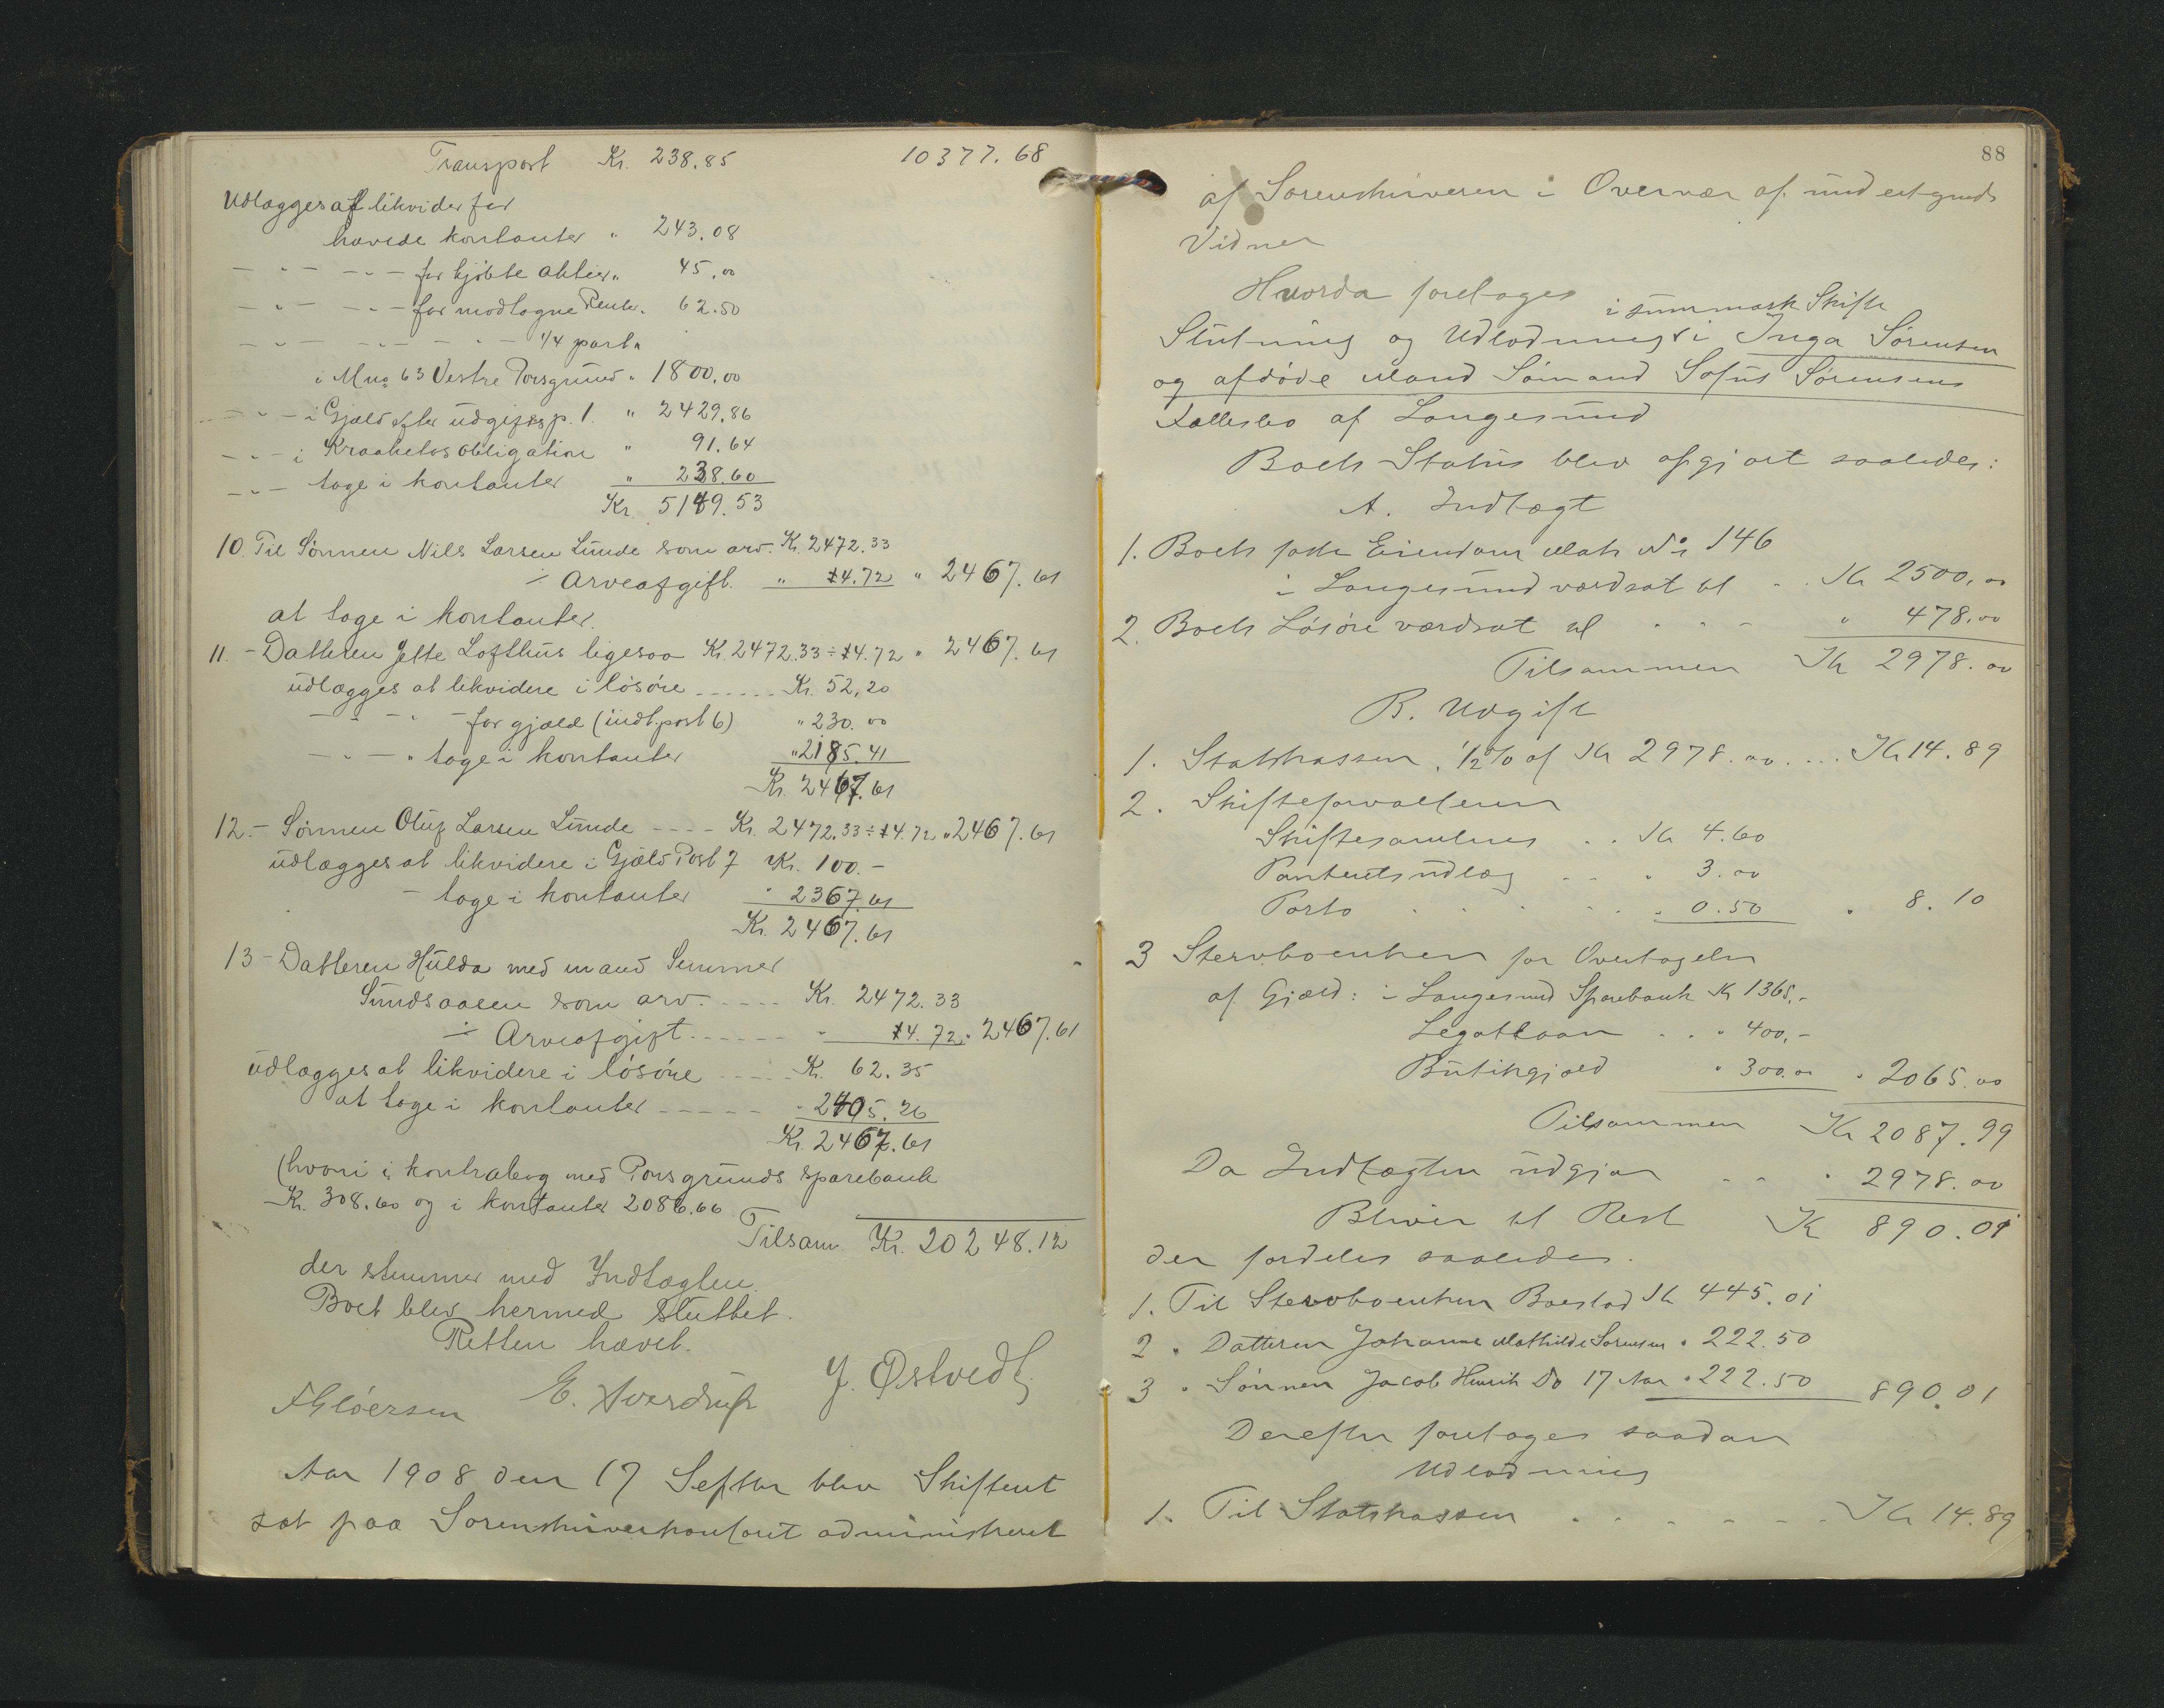 Transport Kr. 238.85 10377.68
Udlægges at likvidere for
hævede kontanter " 243.08
— " — — " — for kjöbte Aktier " 45.00
— " — — " — for modtagne Renter " 62.50
— " — — " — — " — 1/4 part "
i Mno 63 Vestre Porsgrund " 1800.00
— " — i Gjæld efter udgiftsp. 1. " 2429.86
— " — i obligation " 91.64
— " — tage i kontanter " 238.60
Kr. 5149.53
10. Til Sönnen Nils Larsen Lunde som arv. Kr. 2472.33
÷ Arveafgift. " 4.72 " 2467.61
at tage i kontanter.
11. — Datteren Jette Lofthus ligesaa Kr. 2472.33 ÷ 4.72 " 2467.61
udlægges at likvidere i lösöre ...... Kr. 52.20
— " — " — for gjæld (indt. post 6) " 230.00
— " — " tage i kontanter " 2185.41
Kr. 2467.61
12. — Sönnen Oluf Larsen Lunde - - - - Kr. 2472.33 ÷ 4.72 " 2467.61
udlægges at likvidere i Gjæld Post 7 Kr. 100.-
— tage i kontanter " 2367.61
Kr. 2467.61
13 — Datteren Hulda med mand
Sundsaasen som arv. ..... Kr. 2472.33
÷ Arveafgift ...... " 4.72 " 2467.61
udlægges at likvidere i lösöre ..... Kr. 62.35
at tage i kontanter - - - - - " 2405.26
Kr. 2467.61
(hvori i kontrabog med Porsgrunds sparebank
Kr. 308.60 og i kontanter 2086.66
Tilsam. Kr. 20248.12
der stemmer med Indtægten.
Boet blev hermed sluttet.
Retten hævet.
J. Østvedt
E. Sverdrup
Aar 1908 den 17 Septbr blev Skifteret
sat paa Sorenskriverkontoret administreret
88
af Sorenskriveren i Overvær af undertegnede
Vidner
Hvorda foretages
i summarisk Skifte
Slutning og Udlodning i Inga Sørensen
og afdöde Mand Sömand Sofus Sørensens
Fællesbo af Langesund
Boets Status blev opgjort saaledes:
A. Indtægt
1. Boets faste Eiendom Matr No 146
i Langesund værdsat til . . Kr 2500.00
2. Boets Lösöre værdsat til . . - " 478.00
Tilsammen Kr 2978.00
B. Udgift
1. Statskassen 1/2 % af Kr 2978.00 .... Kr 14.89
2. Skifteforvalteren
Skiftesamlnes . . Kr 4.60
Panteretsudlæg . . " 3.00
Porto . . . . . " 0.50 " 8.10
3 Stervboenken for Overtagelse
af Gjæld: i Langesund Sparebank Kr 1365.-
Legatlaan . . " 400,-
Butikgjæld " 300.00 " 2065.00
Tilsammen Kr 2087.99
Da Indtægten udgjør . . " 2978.00
Bliver til Rest Kr 890.01
der fordeles saaledes.
1. Til Stervboenken Boeslod Kr 445.01
2 " Datteren Johanne Mathilde Sørensen " 222.50
3 " Sönnen Jacob Henrik Do 17 Aar " 222.50 890.01
Derefter foretages saadan
Udlodning
1. Til Statskassen . . . . - - . Kr 14.89